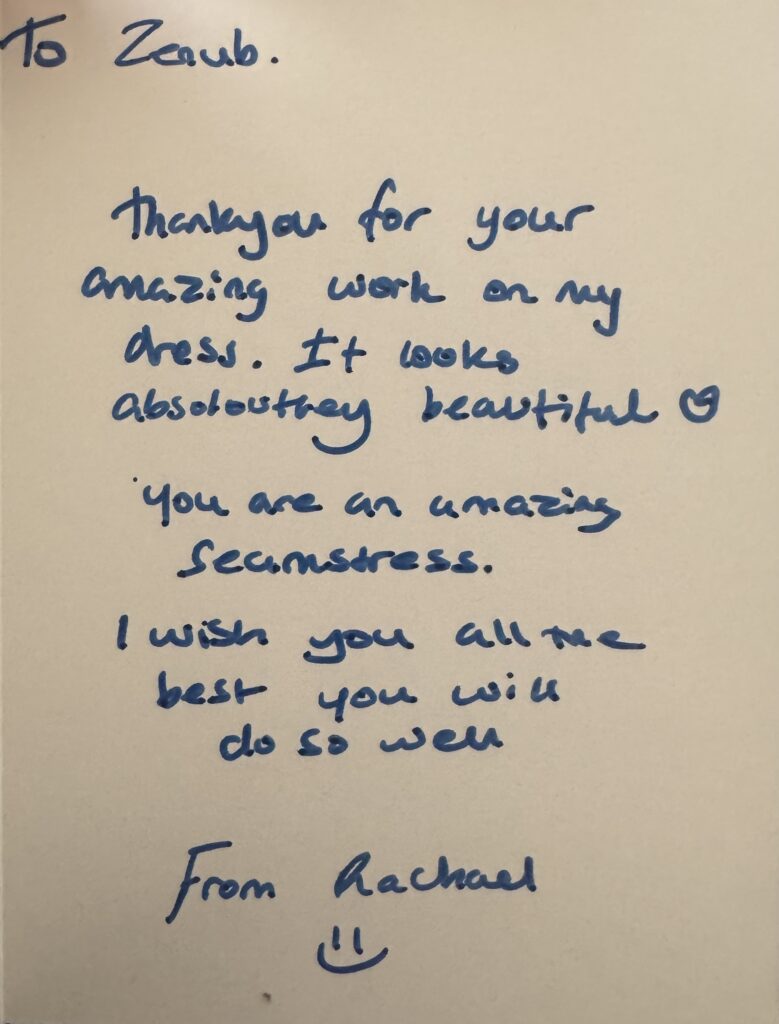 To Zenub.
Thankyou for your
amazing work on my
dress. It looks
absoloutley beautiful ♡
You are an amazing
Seamstress.
I wish you all the
best you will
do so well
From Rachael